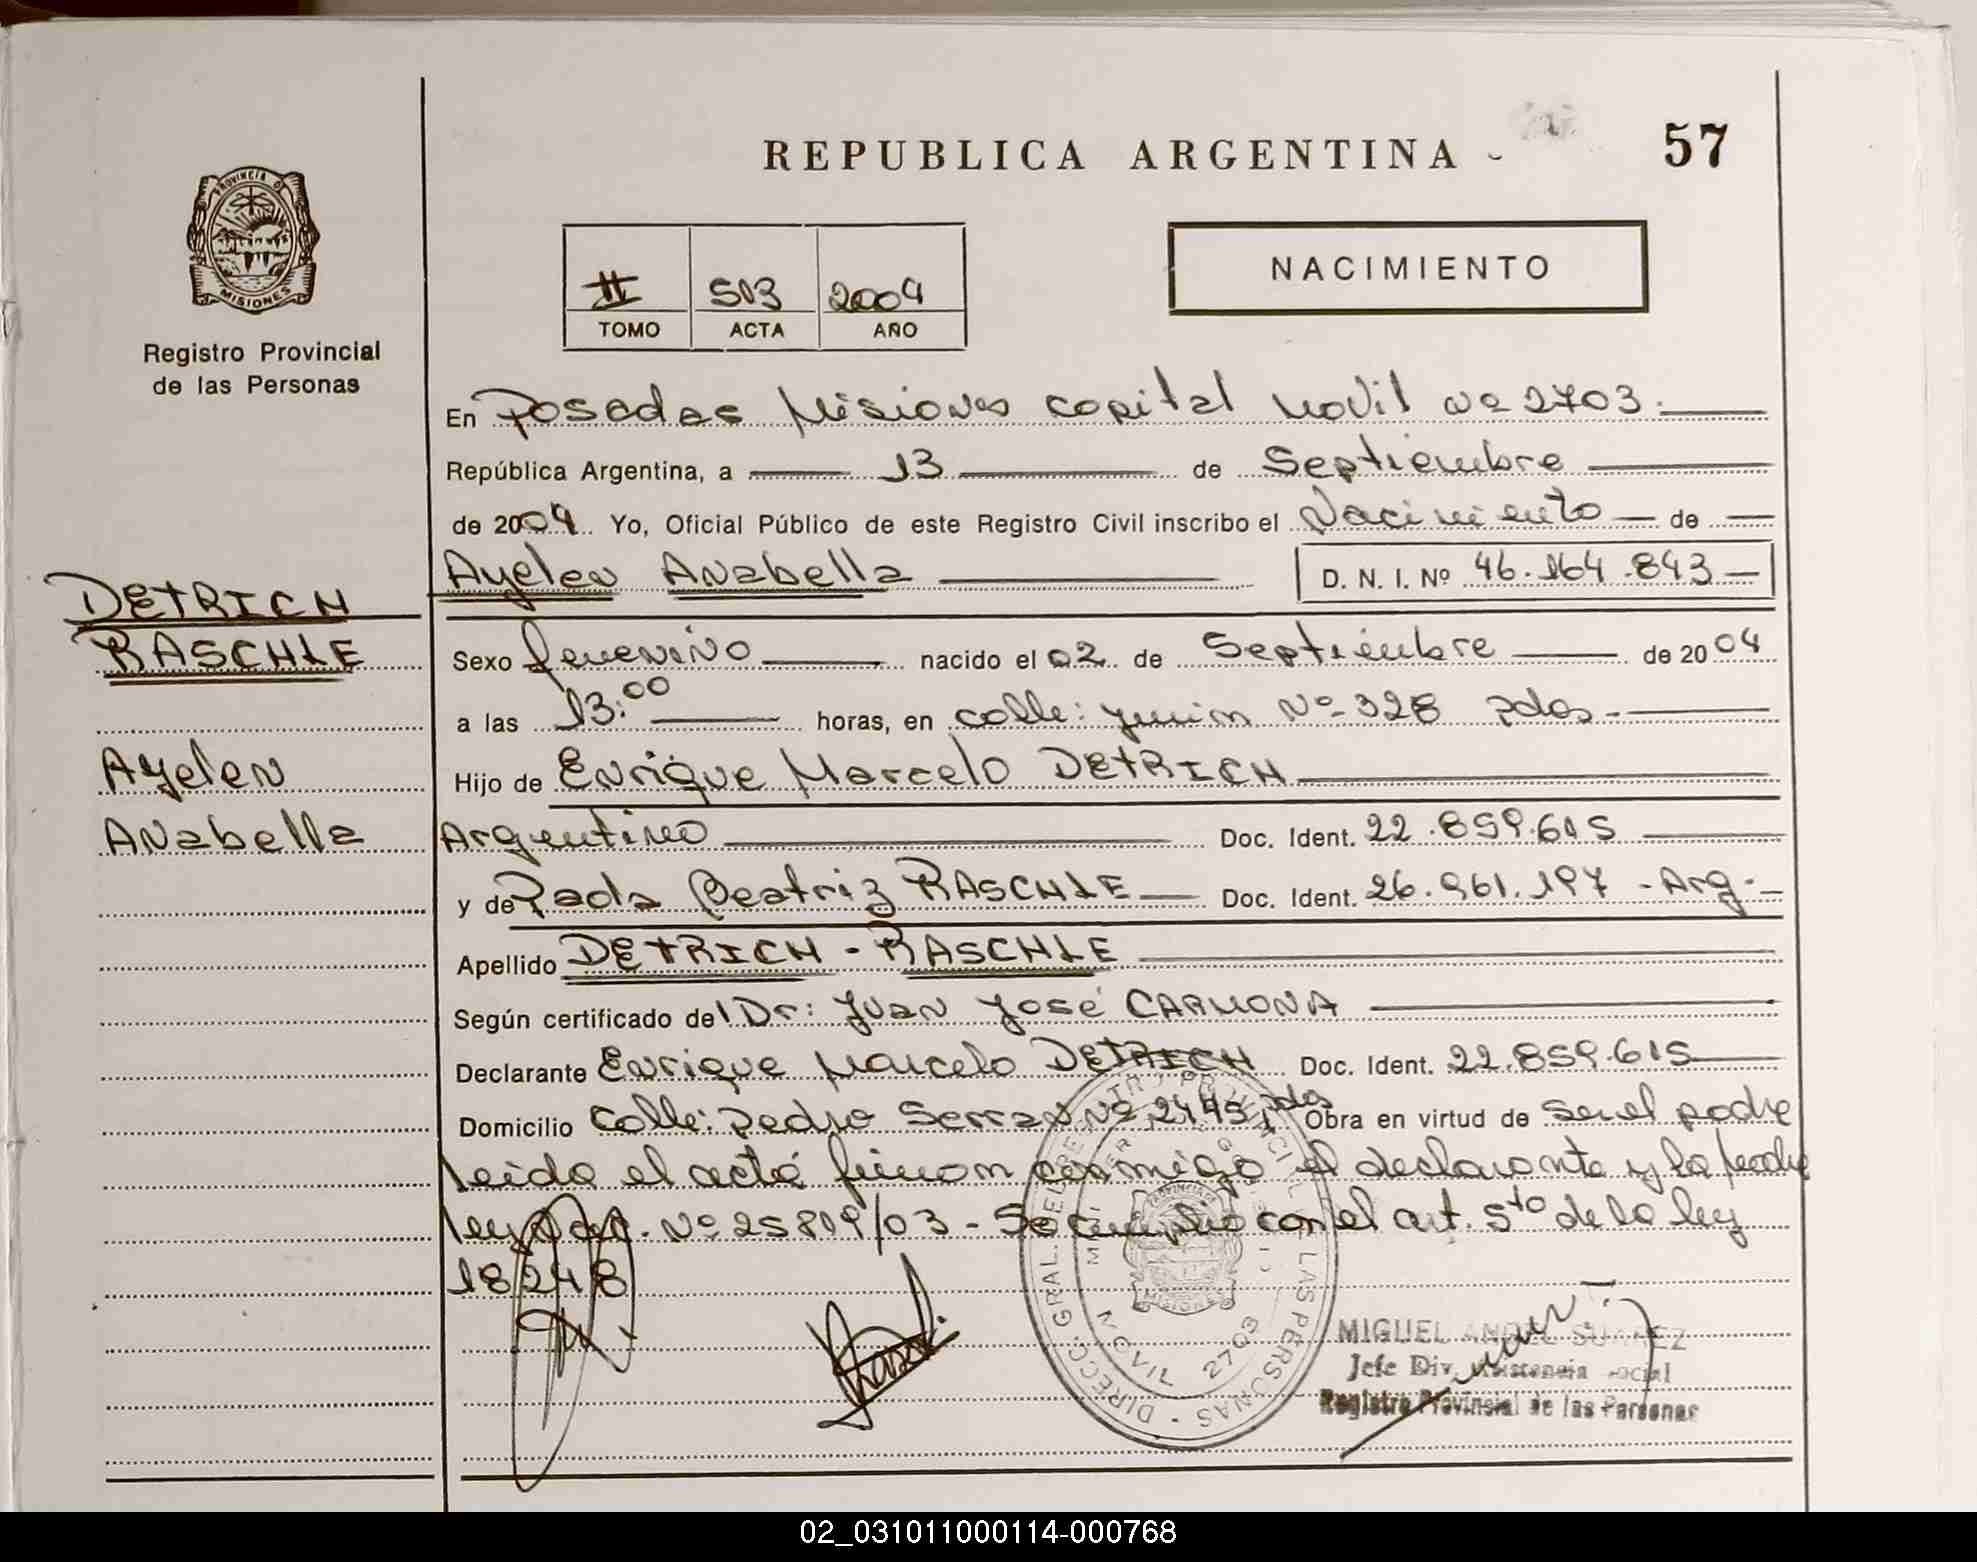 REPUBLICA ARGENTINA
57
PROVINCIA DE
MISIONES
Registro Provincial
de las Personas
II 503 2004
TOMO ACTA AÑO
NACIMIENTO
En Posadas Misiones capital Movil Nº 2703.
República Argentina, a 13 de Septiembre
de 2004 Yo, Oficial Público de este Registro Civil inscribo el Nacimiento de
Ayelen Anabella D. N. I. Nº 46.164.843
DETRICH
RASCHLE
Ayelen
Anabella
Sexo femenino nacido el 02 de Septiembre de 2004
a las 13:00 horas, en calle: Junin Nº 328 pdas.
Hijo de Enrique Marcelo DETRICH
Argentino Doc. Ident. 22.859.615
y de Rada Beatriz RASCHLE Doc. Ident. 26.961.197 - Arg.
Apellido DETRICH - RASCHLE
Según certificado del Dr: Juan José CARMONA
Declarante Enrique Marcelo DETRICH Doc. Ident. 22.859.615
Domicilio Calle: Pedro Serrano Nº 2445, pdas Obra en virtud de ser el padre
leida el acta firman conmigo el declarante y la madre
ley Nº 25819/03 - Se cumplio con el art. 5to de la ley
18248
DIRECC. GRAL. DEL REGISTRO PROVINCIAL DE LAS PERSONAS
MOVIL 2703
PROVINCIA DE
MISIONES
MIGUEL ANGEL SUAREZ
Jefe Div. Asistencia Social
Registro Provincial de las Personas
02_031011000114-000768